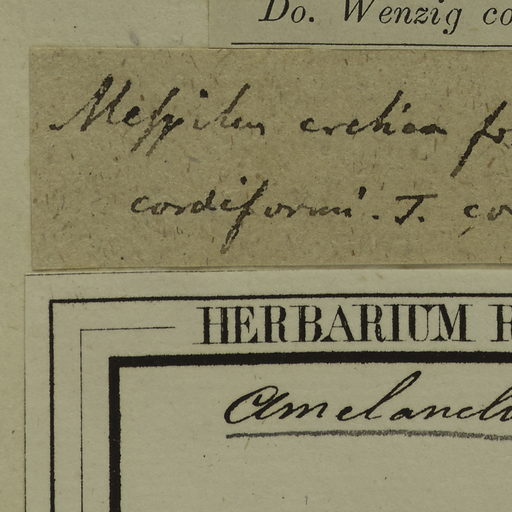 Do. Wenzig co
Mespilus cretica fo
cordiformi. T. co
HERBARIUM R
Amelanch